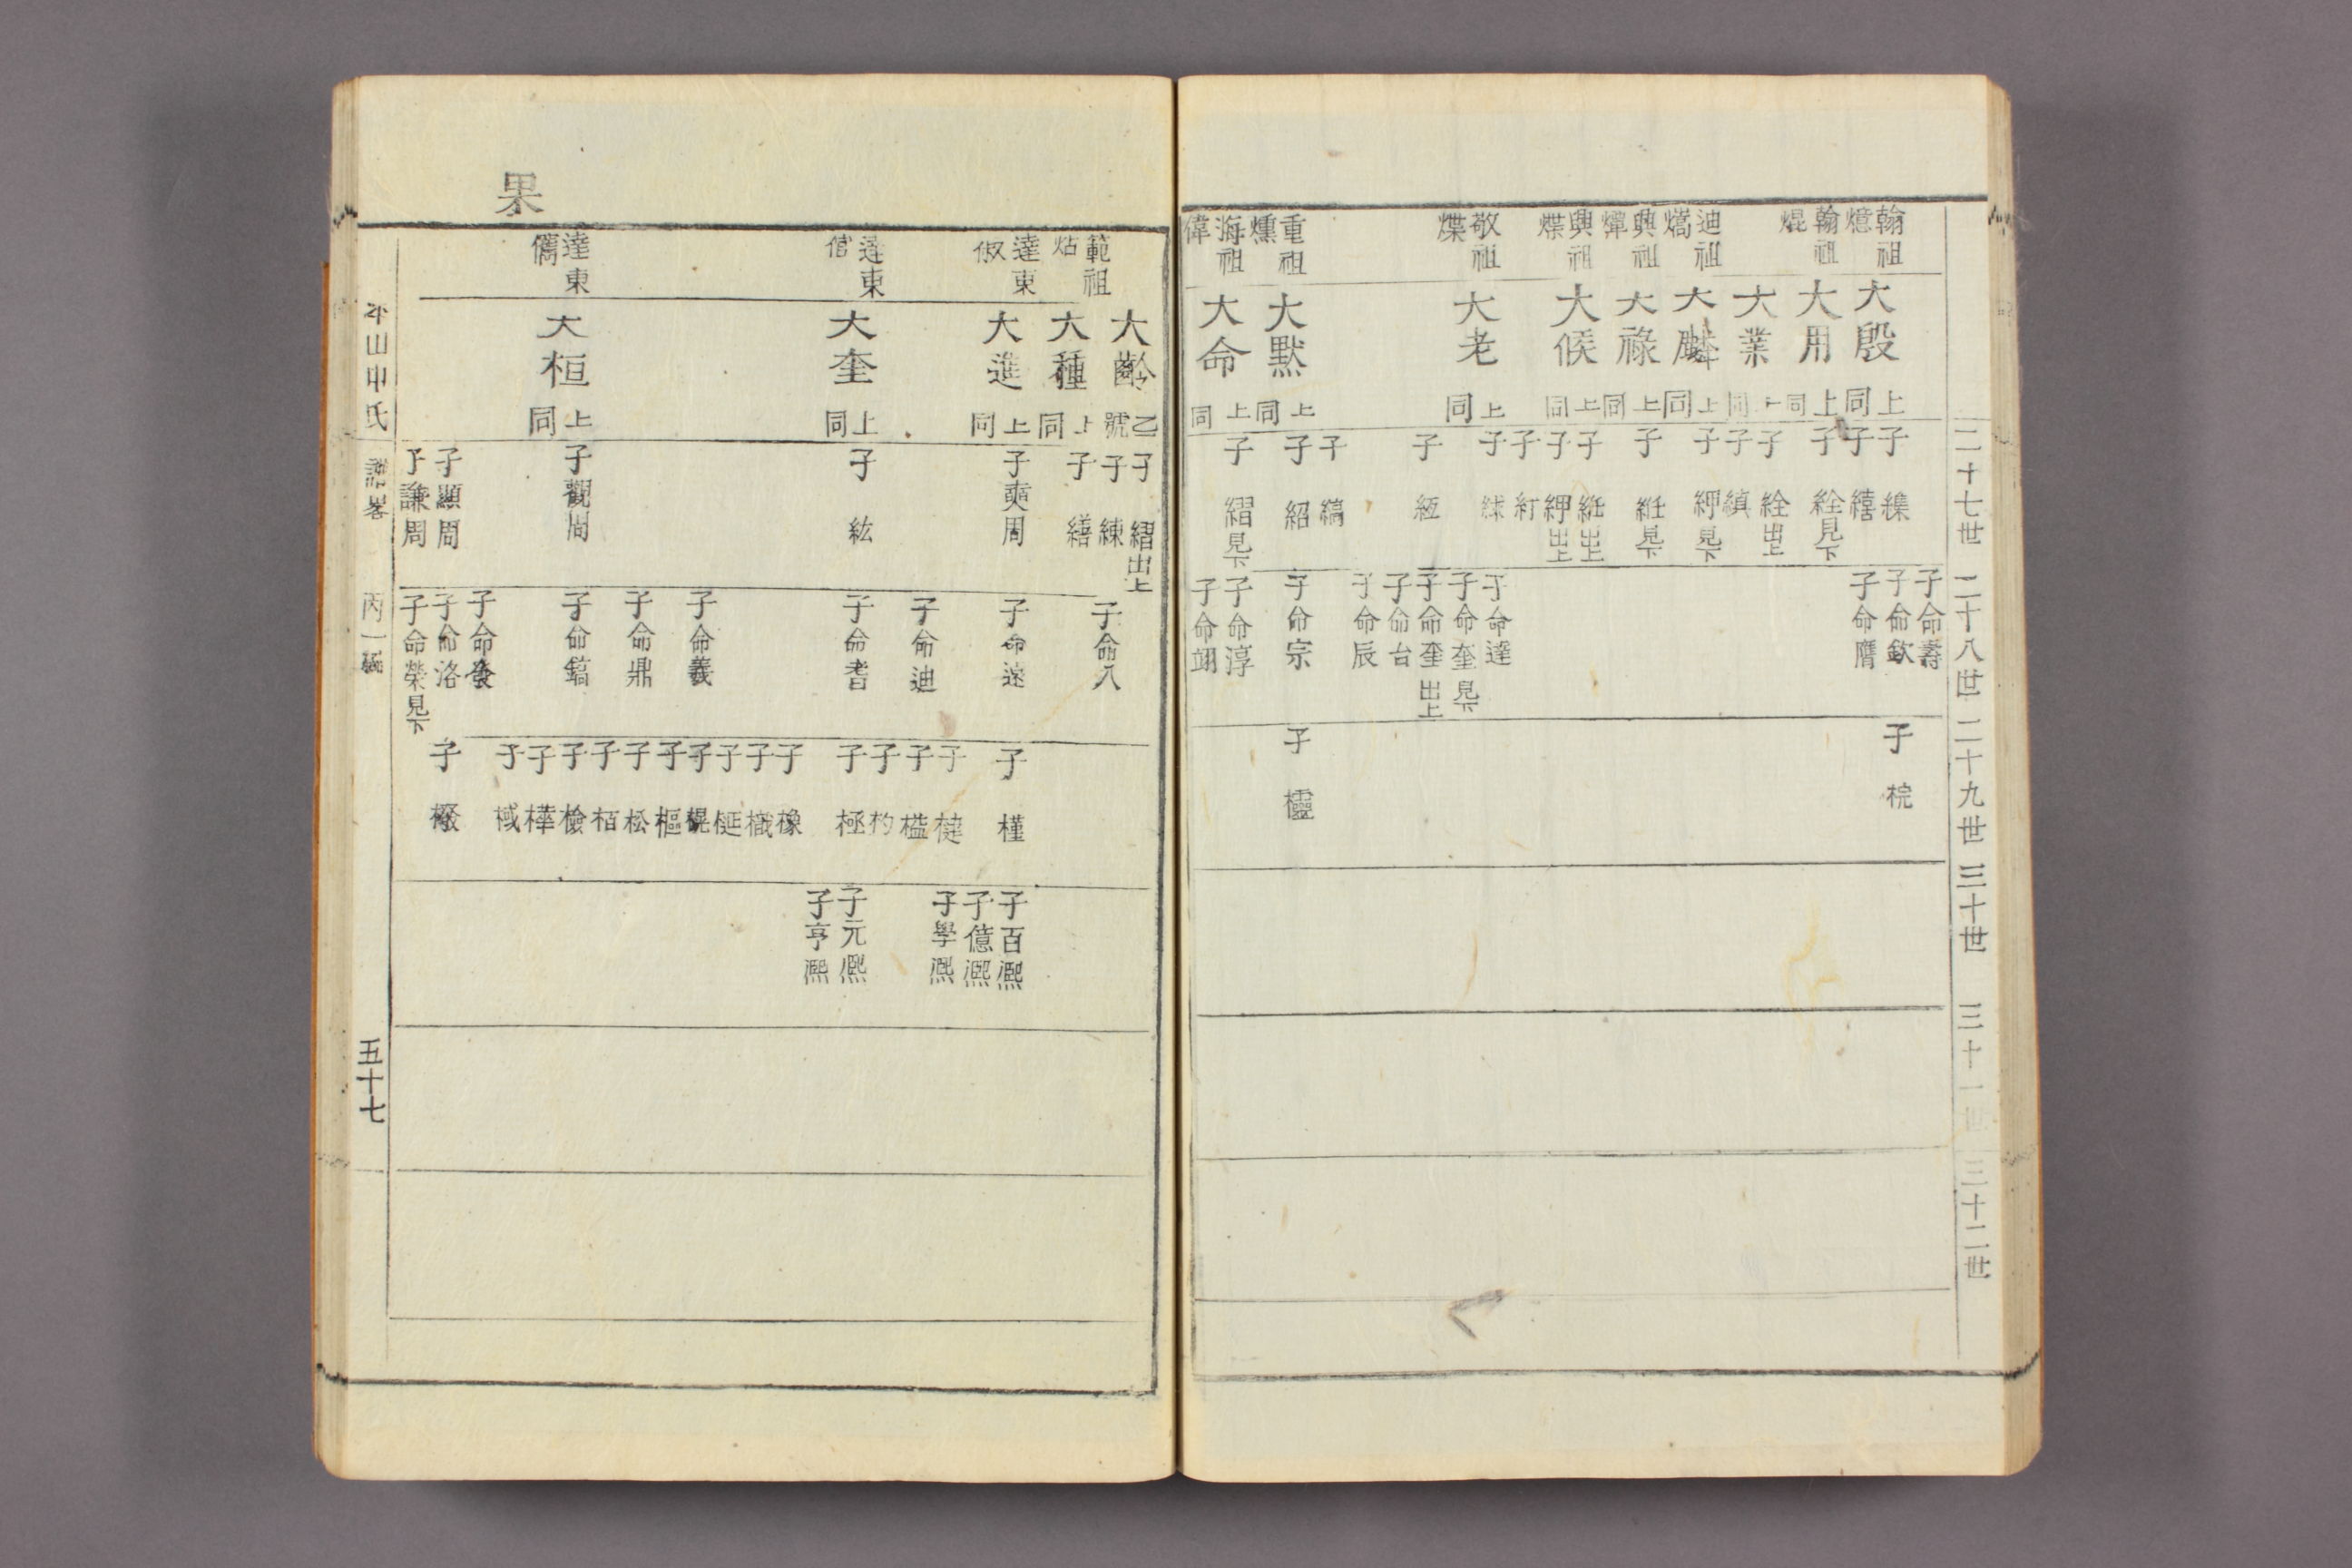 二十七世
二十八世
二十九世
三十世
三十一世
三十二世
翰祖
燱
翰祖
焜
迪祖
熇
興祖
燀
興祖
煠
敬祖
煠
重祖
燻
海祖
偉
大殷
上同
大用
上同
大業
上同
大麟
上同
大祿
上同
大候
上同
大老
上同
大默
上同
大命
上同
子 繥
子 縇
子 絟見下
子 絟出上
子 縝
子 紳見下
子 紝見下
子 紝出上
子 紳出上
子 紅
子 絿
子 縆
子 縞
子 紹
子 縉見下
子命壽
子命欽
子命膺
子命達
子命奎見下
子命奎出上
子命台
子命辰
子命宗
子命淳
子命翊
子 梡
子 櫺
果
範祖
炶
達東
俶
達東
倌
達東
儁
大齡
乙號
大種
上同
大進
上同
大奎
上同
大桓
上同
子 縉出上
子 練
子 繕
子奭周
子 紘
子觀周
子顯周
子謙周
子命入
子命遠
子命迪
子命耆
子命義
子命鼎
子命鎬
子命發
子命洛
子命榮見下
子 槿
子 楗
子 榏
子 杓
子 極
子 橡
子 樴
子 梴
子 榥
子 樞
子 松
子 栢
子 檢
子 樺
子 棫
子 橃
子百熙
子億熙
子學熙
子元熙
子亨熙
平山申氏
譜畧
丙一編
五十七